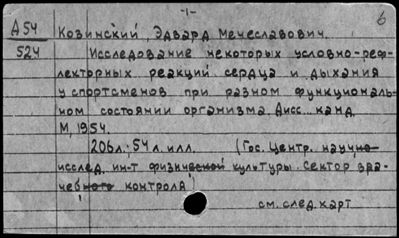 -1-
6
А54 Козинский, Эдвард Мечеславович.
524 Исследование некоторых условно-реф-
лекторных реакций сердца и дыхания
у спортсменов при разном функциональ-
ном состоянии организма. Дисс... канд.
М, 1954.
206л.; 54л. илл. (Гос. Центр. научно
исслед. ин-т физической культуры. Сектор вра-
чебного контроля)
см. след. карт